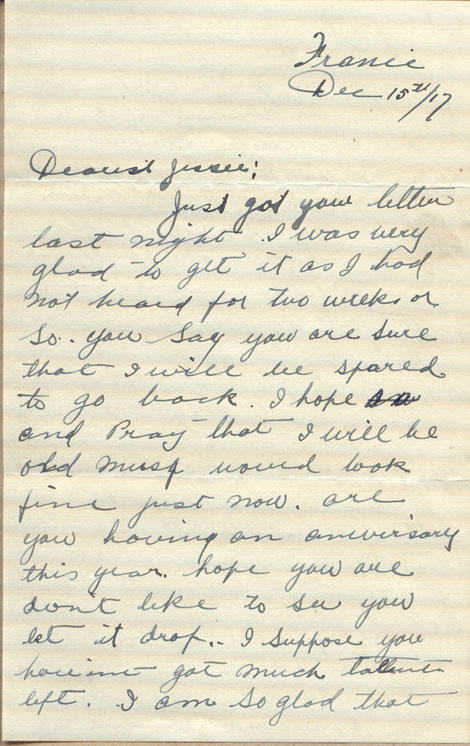 France
Dec 15th/17
Dearest Jessie;
Just got your letter
last night. I was very
glad to get it as I had
not heard for two weeks or
so. you say you are sure
that I will be spared
to go back. I hope
and Pray that I will be
old would look
fine just now. are
you having an aniversary
this year. hope you are
don't like to see you
let it drop. I suppose you
havent got much talent
left. I am so glad that